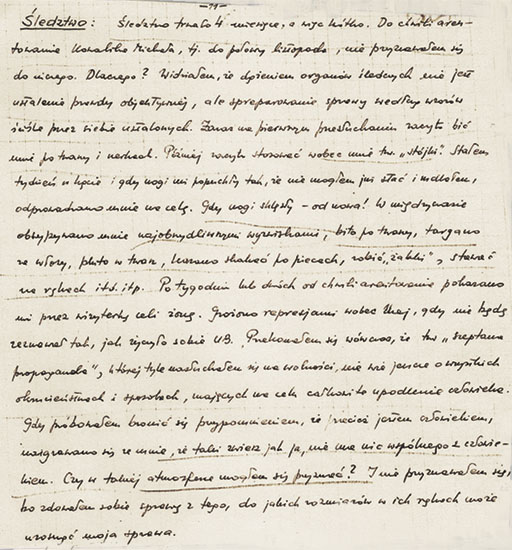 — 11 —
Śledztwo: Śledztwo trwało 4 miesiące, a więc krótko. Do chwili aresz-
towania Kowalska Michała, tj. do połowy listopada, nie przyznawałem się
do niczego. Dlaczego? Widziałem, że dążeniem organów śledczych nie jest
ustalenie prawdy objektywnej, ale spreparowanie sprawy według wzorów
ściśle przez siebie ustalonych. Zaraz na pierwszym przesłuchaniu zaczęto bić
mnie po twarzy i nerkach. Później zaczęto stosować wobec mnie tzw. „stójki". Stałem
tydzień w kącie i gdy nogi mi popuchły tak, że nie mogłem już stać i mdlałem,
odprowadzano mnie na celę. Gdy nogi sklęsły – od nowa! W międzyczasie
obsypywano mnie najobrzydliwszymi wyzwiskami, bito po twarzy, targano
za włosy, pluto w twarz, kazano skakać po piecach, robić „żabki", stawać
na rękach itd. itp. Po tygodniu lub dwóch od chwili aresztowania pokazano
mi przez wizyterkę celi żonę. Grożono represjami wobec Niej, gdy nie będę
zeznawał tak, jak życzyło sobie UB. Przekonałem się wówczas, że tzw. „szeptana
propaganda", której tyle nasłuchałem się na wolności, nie wie jeszcze o wszystkich
okrucieństwach i sposobach, mających na celu całkowite upodlenie człowieka.
Gdy próbowałem bronić się przypomnieniem, że przecież jestem człowiekiem,
naigrawano się ze mnie, że taki zwierz jak ja, nie ma nic wspólnego z człowie-
kiem. Czy w takiej atmosferze mogłem się przyznać? I nie przyznawałem się,
bo zdawałem sobie sprawę z tego, do jakich rozmiarów w ich rękach może
urosnąć moja sprawa.